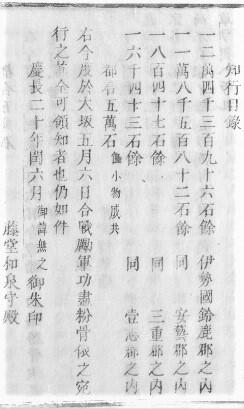 知行目録
一二萬四千三百九十六石餘　伊勢國鈴鹿郡之内
一一萬八千五百八十二石餘　同　安藝郡之内
一八百四十七石餘　同　三重郡之内
一六千四十三石餘　同　壹志郡之内
都合五萬石　小物成共
右今度於大坂五月六日合戰勵軍功盡粉骨依之宛
行之訖全可領知者也仍如件
慶長二十年閏六月　御諱無之　御朱印
藤堂和泉守殿